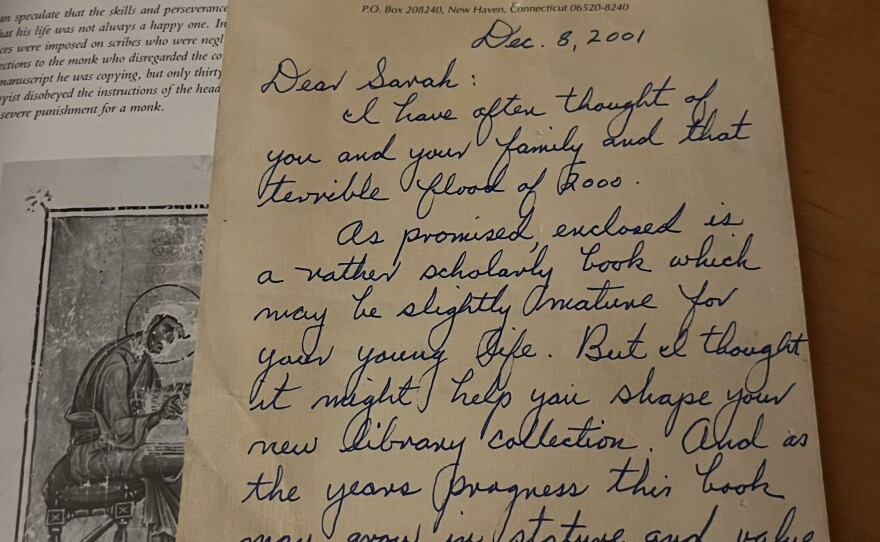 an speculate that the skills and perseverance
hat his life was not always a happy one. In
ces were imposed on scribes who were negl
ections to the monk who disregarded the co
manuscript he was copying, but only thirty
yist disobeyed the instructions of the head
severe punishment for a monk.
P.O. Box 208240, New Haven, Connecticut 06520-8240
Dec. 8, 2001
Dear Sarah:
I have often thought of
you and your family and that
terrible flood of 2000.
As promised, enclosed is
a rather scholarly book which
may be slightly mature for
your young life. But I thought
it might help you shape your
new library collection. And as
the years progress this book
may grow in stature and value